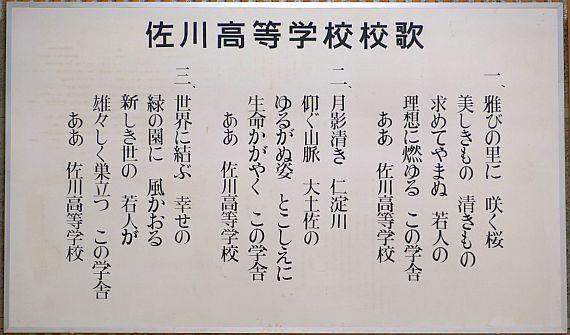 佐川高等学校校歌
一、雅びの里に 咲く桜
美しきもの 清きもの
求めてやまぬ 若人の
理想に燃ゆる この学舎
ああ 佐川高等学校
二、月影清き 仁淀川
仰ぐ山脈 大土佐の
ゆるがぬ姿 とこしえに
生命かがやく この学舎
ああ 佐川高等学校
三、世界に結ぶ 幸せの
緑の園に 風かおる
新しき世の 若人が
雄々しく巣立つ この学舎
ああ 佐川高等学校